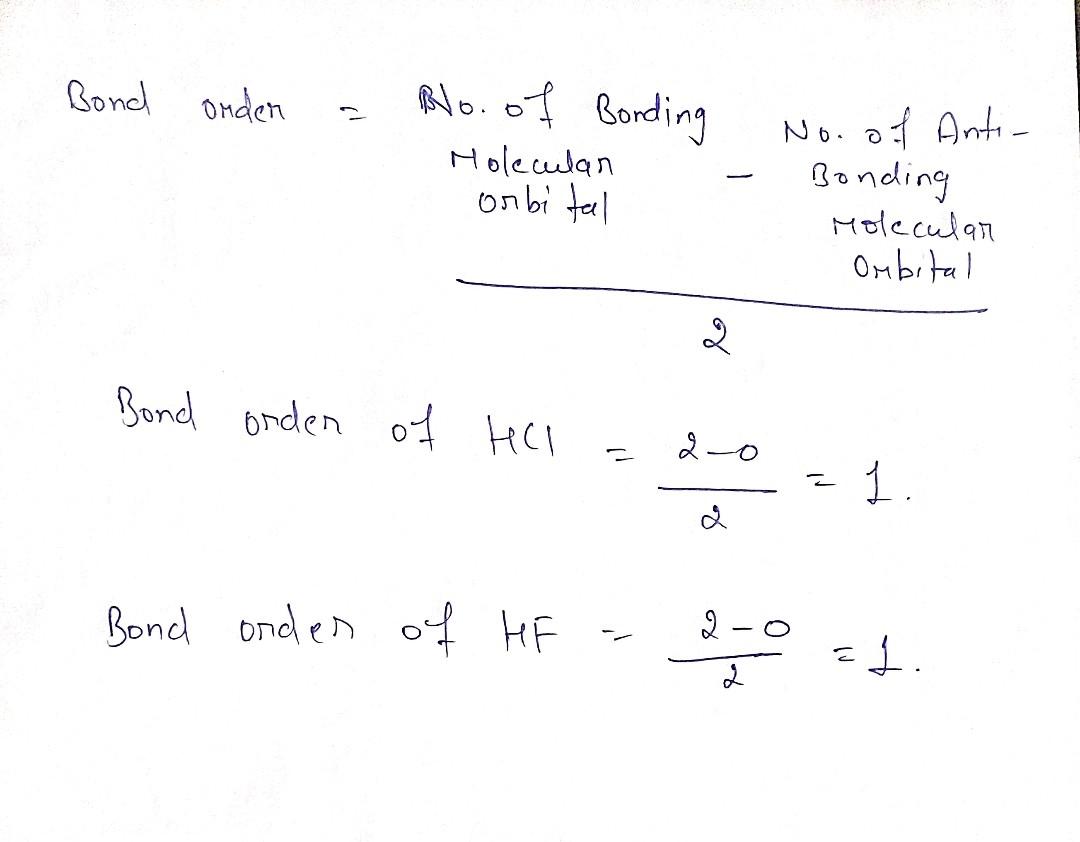 Bond order = No. of Bonding Molecular orbital - No. of Anti-Bonding Molecular Orbital
2
Bond order of HCl = 2-0 = 1.
2
Bond order of HF = 2-0 = 1.
2